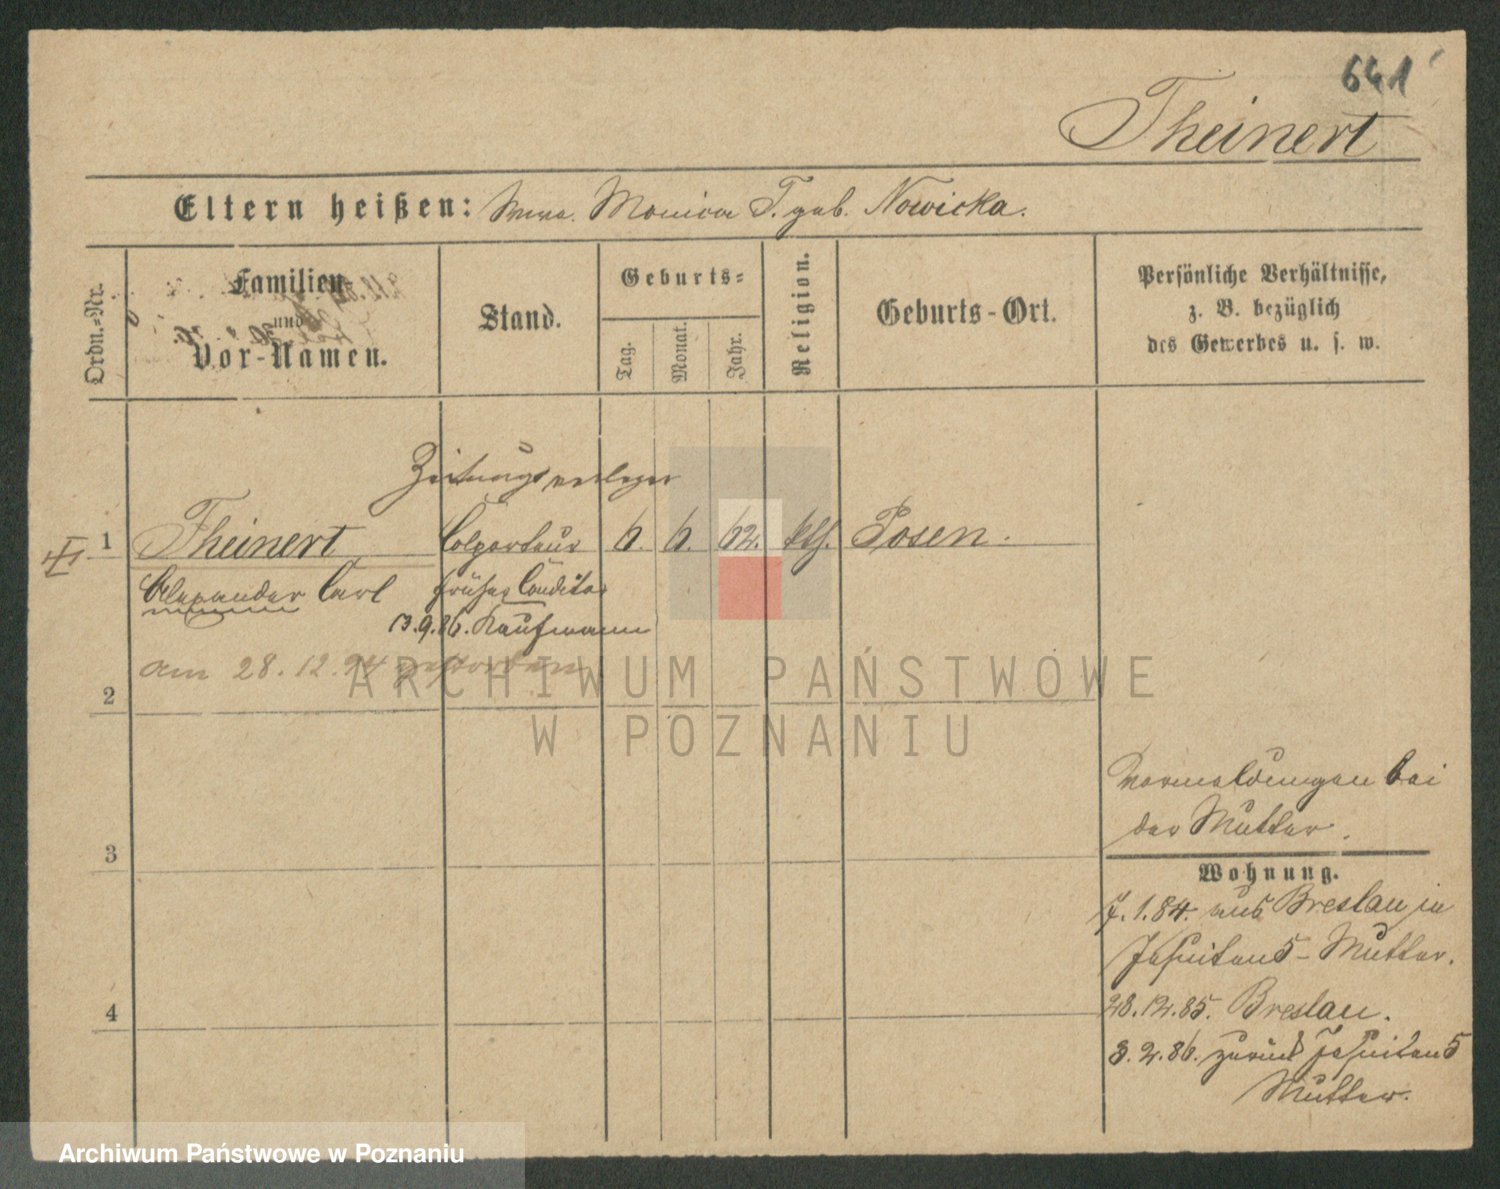 641
Theinert
Eltern heißen: Wwe. Monica T. geb. Nowicka.
Ordn.-Nr.
Familien-
und
Vor-Namen.
Stand.
Geburts-
Tag.
Monat.
Jahr.
Religion.
Geburts-Ort.
Persönliche Verhältnisse,
z. B. bezüglich
des Gewerbes u. s. w.
Zeitungsverleger
1 Theinert Colporteur 6. 6. 62. kth. Posen.
Alexander Carl früher Conditor
13.9.86. Kaufmann
am 28.12.94 gestorben
2
3
4
Vormeldungen bei
der Mutter.
Wohnung.
7.1.84. aus Breslau in
Jesuiten 5 - Mutter.
28.12.85. Breslau.
3.2.86. zurück Jesuiten 5
Mutter.
ARCHIWUM PAŃSTWOWE
W POZNANIU
Archiwum Państwowe w Poznaniu